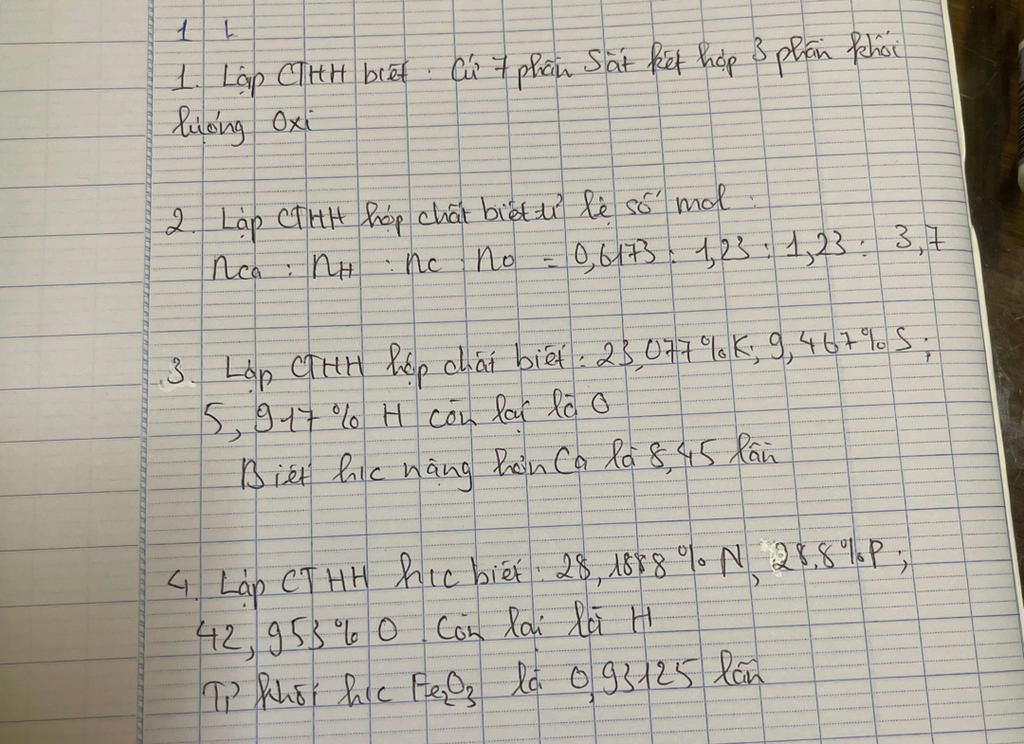 1 L
1. Lập CTHH biết : Cứ 7 phần Sắt kết hợp 3 phần khối
lượng Oxi
2. Lập CTHH hợp chất biết tỉ lệ số mol :
nCa : nH : nC : nO = 0,6173 : 1,23 : 1,23 : 3,7
3. Lập CTHH hợp chất biết : 23,077%K; 9,467%S;
5,917% H còn lại là O
Biết h/c nặng hơn Ca là 8,45 lần
4. Lập CTHH h/c biết : 28,1888%N, 28,8%P;
42,953%O. Còn lại là H
Tỉ khối h/c Fe2O3 là 0,93125 lần